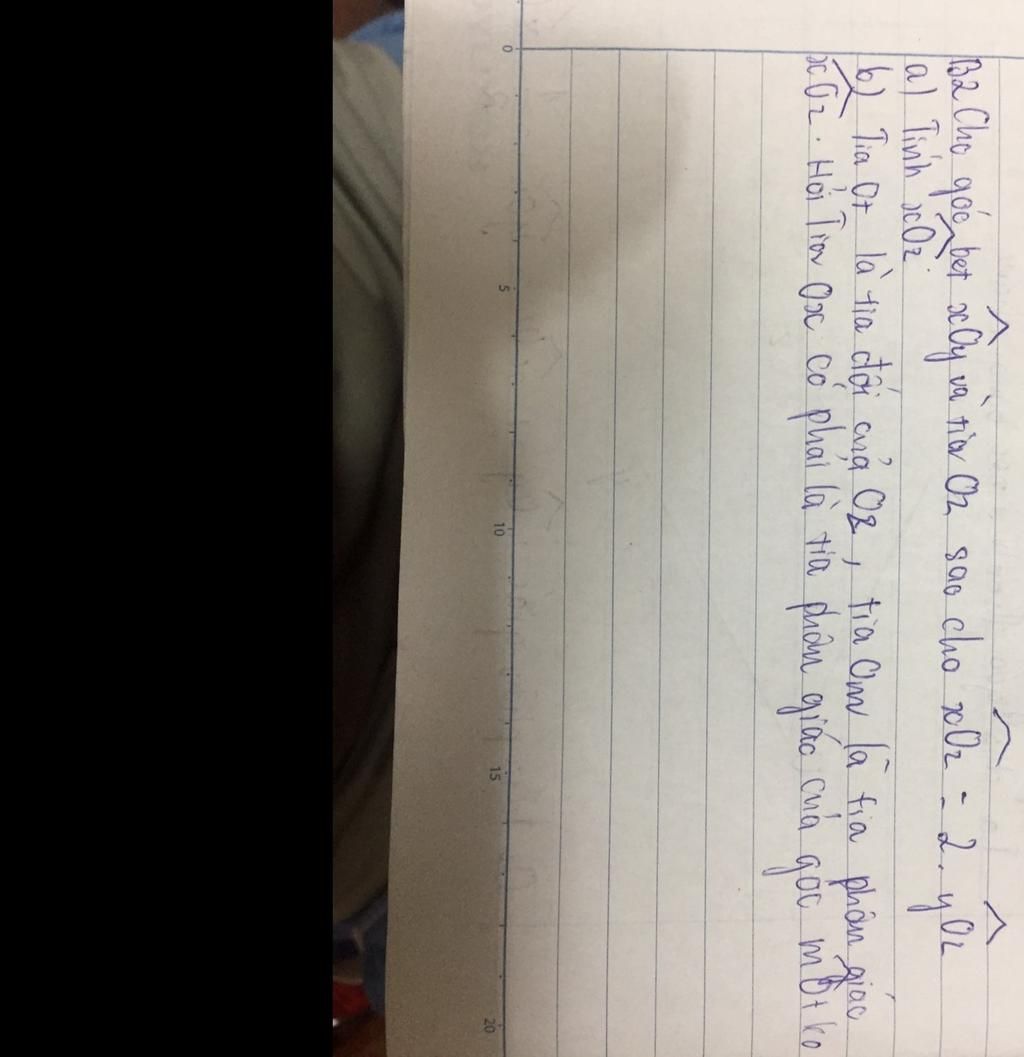 B2 Cho góc bẹt xOy và tia Oz sao cho xOz = 2. yOz
a) Tính xOz.
b) Tia Ot là tia đối của Oz, tia Om là tia phân giác
xOz. Hỏi Tia Ox có phải là tia phân giác của góc mOt ko
0
5
10
15
20